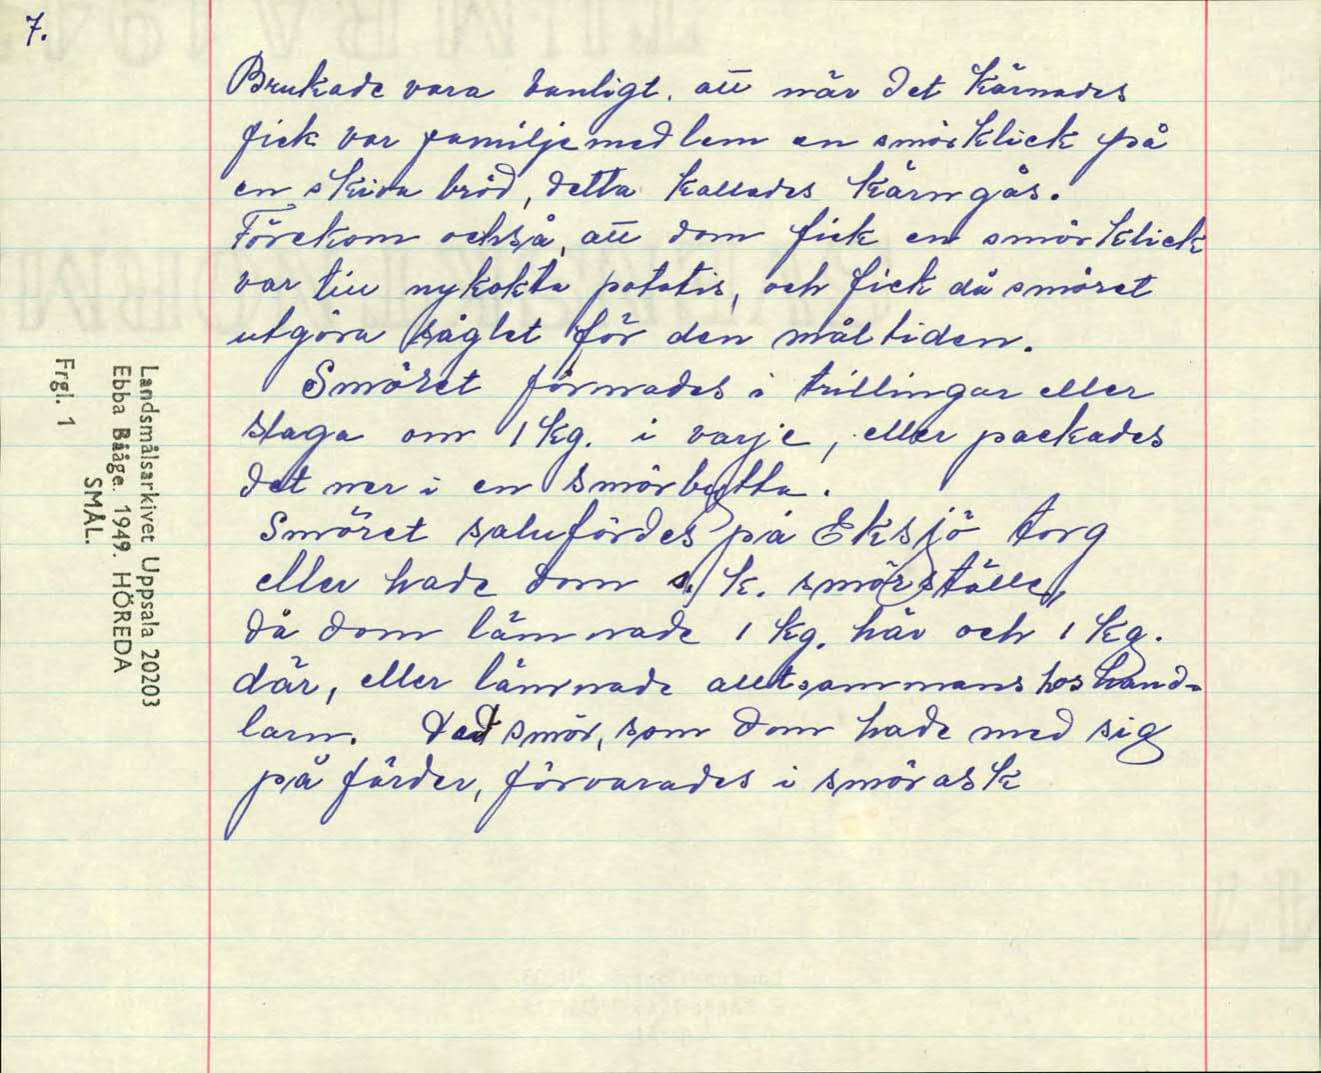 7.
Brukade vara vanligt, att när det kärnades
fick var familjemedlem en smörklick på
en skiva bröd, detta kallades kärngås.
Förekom också, att dom fick en smörklick
var till nykokta potatis, och fick då smöret
utgöra såglet för den måltiden.
Smöret formades i trillingar eller
staga om 1 kg. i varje, eller packades
det ner i en smörbytta.
Smöret salufördes på Eksjö torg
eller hade dom s. k. smörställe,
då dom lämnade 1 kg. här och 1 kg.
där, eller lämnade alltsammans hos hand-
larn. Det smör, som dom hade med sig
på färder, förvarades i smörask
Landsmålsarkivet Uppsala 20203
Ebba Bååge. 1949. HÖREDA
SMÅL.
Frgl. 1